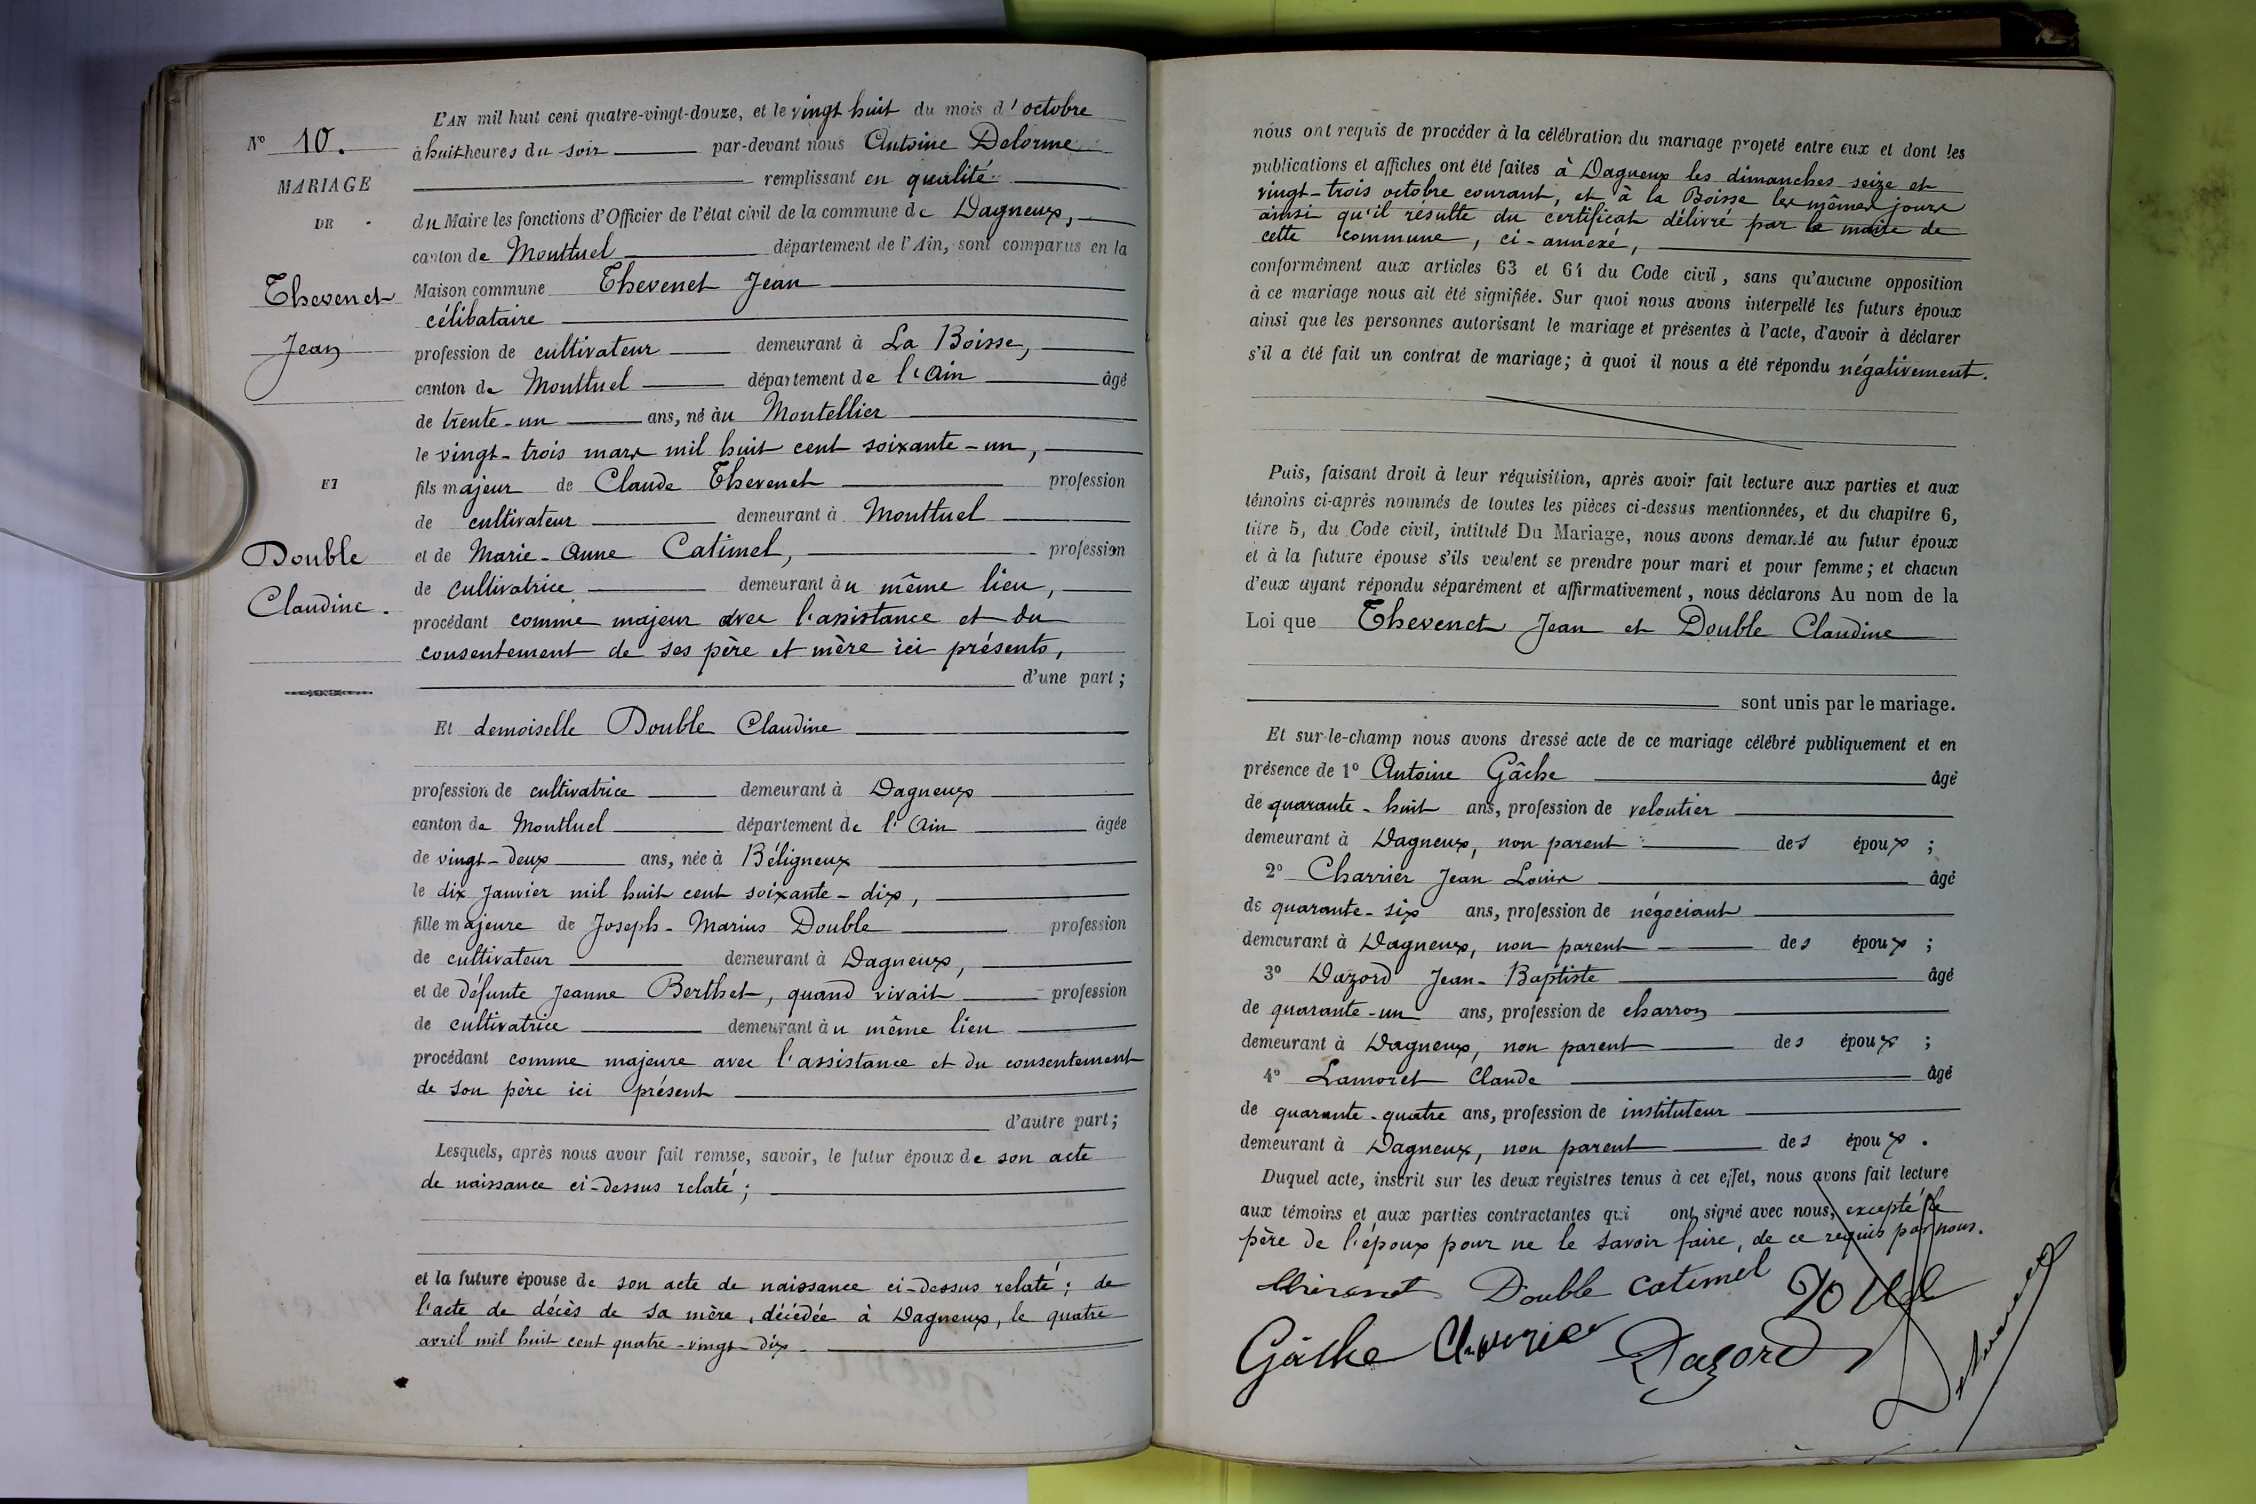 N° 10.
MARIAGE
DE
Thevenet
Jean
ET
Double
Claudine.
L'AN mil huit cent quatre-vingt-douze, et le vingt huit du mois d'octobre
à huit heures du soir par-devant nous Antoine Delorme
remplissant en qualité
du Maire les fonctions d'Officier de l'état civil de la commune de Dagneux,
canton de Montluel département de l'Ain, sont comparus en la
Maison commune Thevenet Jean
célibataire
profession de cultivateur demeurant à La Boisse,
canton de Montluel département de l'Ain âgé
de trente-un ans, né au Montellier
le vingt-trois mars mil huit cent soixante-un,
fils majeur de Claude Thevenet profession
de cultivateur demeurant à Montluel
et de Marie-Anne Catimel, profession
de cultivatrice demeurant au même lieu,
procédant comme majeur avec l'assistance et du
consentement de ses père et mère ici présents,
d'une part;
Et demoiselle Double Claudine
profession de cultivatrice demeurant à Dagneux
canton de Montluel département de l'Ain âgée
de vingt-deux ans, née à Béligneux
le dix Janvier mil huit cent soixante-dix,
fille majeure de Joseph-Marius Double profession
de cultivateur demeurant à Dagneux,
et de défunte Jeanne Berthet, quand vivait profession
de cultivatrice demeurant au même lieu
procédant comme majeure avec l'assistance et du consentement
de son père ici présent
d'autre part;
Lesquels, après nous avoir fait remise, savoir, le futur époux de son acte
de naissance ci-dessus relaté;
et la future épouse de son acte de naissance ci-dessus relaté; de
l'acte de décès de sa mère, décédée à Dagneux, le quatre
avril mil huit cent quatre-vingt-dix.
nous ont requis de procéder à la célébration du mariage projeté entre eux et dont les
publications et affiches ont été faites à Dagneux les dimanches seize et
vingt-trois octobre courant, et à la Boisse les mêmes jours
ainsi qu'il résulte du certificat délivré par le maire de
cette commune, ci-annexé,
conformément aux articles 63 et 64 du Code civil, sans qu'aucune opposition
à ce mariage nous ait été signifiée. Sur quoi nous avons interpellé les futurs époux
ainsi que les personnes autorisant le mariage et présentes à l'acte, d'avoir à déclarer
s'il a été fait un contrat de mariage; à quoi il nous a été répondu négativement.
Puis, faisant droit à leur réquisition, après avoir fait lecture aux parties et aux
témoins ci-après nommés de toutes les pièces ci-dessus mentionnées, et du chapitre 6,
titre 5, du Code civil, intitulé Du Mariage, nous avons demandé au futur époux
et à la future épouse s'ils veulent se prendre pour mari et pour femme; et chacun
d'eux ayant répondu séparément et affirmativement, nous déclarons Au nom de la
Loi que Thevenet Jean et Double Claudine
sont unis par le mariage.
Et sur-le-champ nous avons dressé acte de ce mariage célébré publiquement et en
présence de 1° Antoine Gâche âgé
de quarante-huit ans, profession de veloutier
demeurant à Dagneux, non parent des époux;
2° Charrier Jean Louis âgé
de quarante-six ans, profession de négociant
demeurant à Dagneux, non parent des époux;
3° Dazord Jean-Baptiste âgé
de quarante-un ans, profession de charron
demeurant à Dagneux, non parent des époux;
4° Lamoret Claude âgé
de quarante-quatre ans, profession de instituteur
demeurant à Dagneux, non parent des époux.
Duquel acte, inscrit sur les deux registres tenus à cet effet, nous avons fait lecture
aux témoins et aux parties contractantes qui ont signé avec nous, excepté le
père de l'époux pour ne le savoir faire, de ce requis par nous.
Double Catimel
Gâche Charrier Dazord